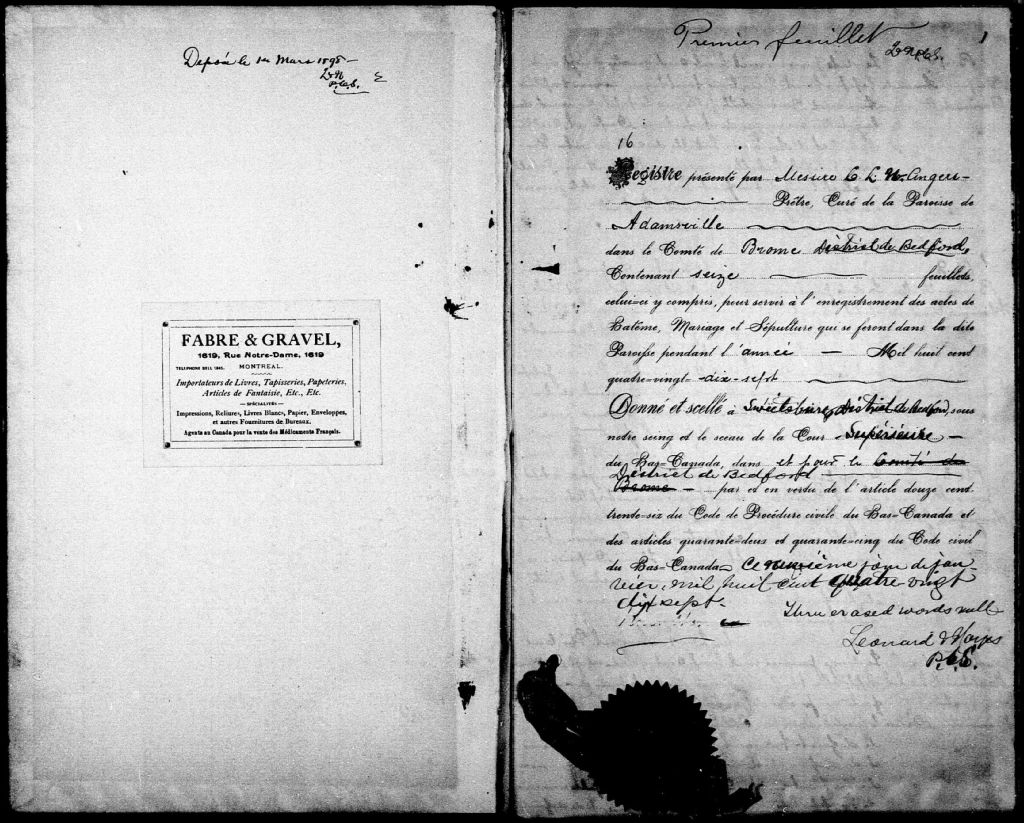 Déposé le 1er Mars 1898 –
P.C.S.
FABRE & GRAVEL,
1619, Rue Notre-Dame, 1619
TELEPHONE BELL 1845. MONTREAL.
Importateurs de Livres, Tapisseries, Papeteries,
Articles de Fantaisie, Etc., Etc.
— SPÉCIALITÉS —
Impressions, Reliures, Livres Blancs, Papier, Enveloppes,
et autres Fournitures de Bureaux.
Agents au Canada pour la vente des Médicaments Français.
Premier feuillet
P.C.S.
1
16
Registre présenté par Messire C L N. Angers
Prêtre, Curé de la Paroisse de
Adamsville
dans le Comté de Brome District de Bedford,
Contenant seize feuillets,
celui-ci y compris, pour servir à l'enregistrement des actes de
Batême, Mariage et Sépulture qui se feront dans la dite
Paroisse pendant l'année — Mil huit cent
quatre-vingt-dix-sept
Donné et scellé à Sweetsburg, District de Bedford, sous
notre seing et le sceau de la Cour Supérieure –
du Bas-Canada, dans et pour le Comté de
District de Bedford
Brome – par et en vertu de l'article douze cent
trente-six du Code de Procédure civile du Bas-Canada et
des articles quarante-deux et quarante-cinq du Code civil
du Bas-Canada, ce neuvième jour de jan-
vier, mil huit cent quatre vingt
dix sept.
Three erased words null
Leonard
P.C.S.